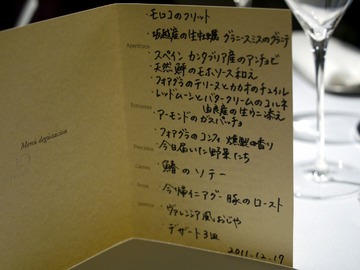 Menú degustación
モロコのフリット
坂越産の生牡蠣 グラニースミスのグラニテ
Aperitivos
スペイン カンタブリア産のアンチョビ
天然鰤のモホソース和え
フォアグラのテリーヌとカカオのチュイル
レッドムーンとバタークリームのコルネ
由良産の生うに添え
Entrantes
アーモンドのガスパッチョ
フォアグラのコンフィ 燻製の香り
Pescados
今日届いた野菜たち
鰆のソテー
Carnes
今帰仁アグー豚のロースト
Arroz
ヴァレンシア風おじや
デザート3皿
2011.12.17